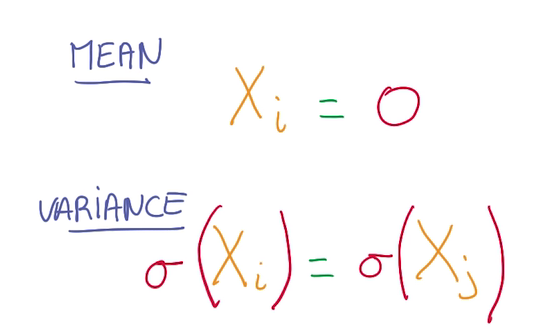 MEAN
Xi = 0
VARiANCE
σ(Xi) = σ(Xj)